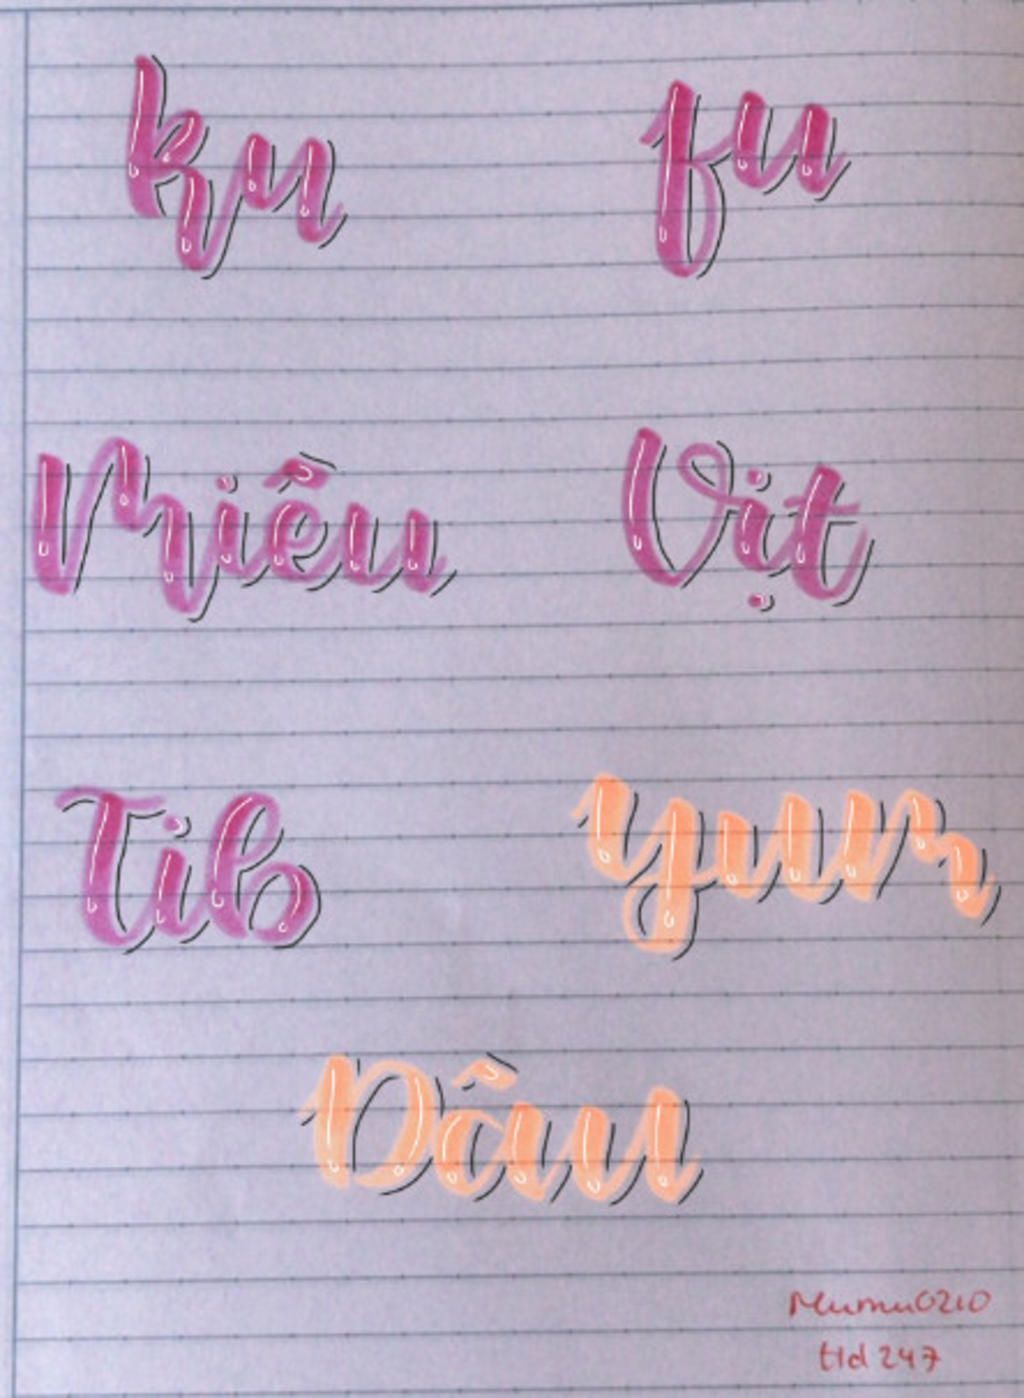 Ku fu
Miêu Vịt
Tib Yum
Dâu
Mumu0210
Hd 247